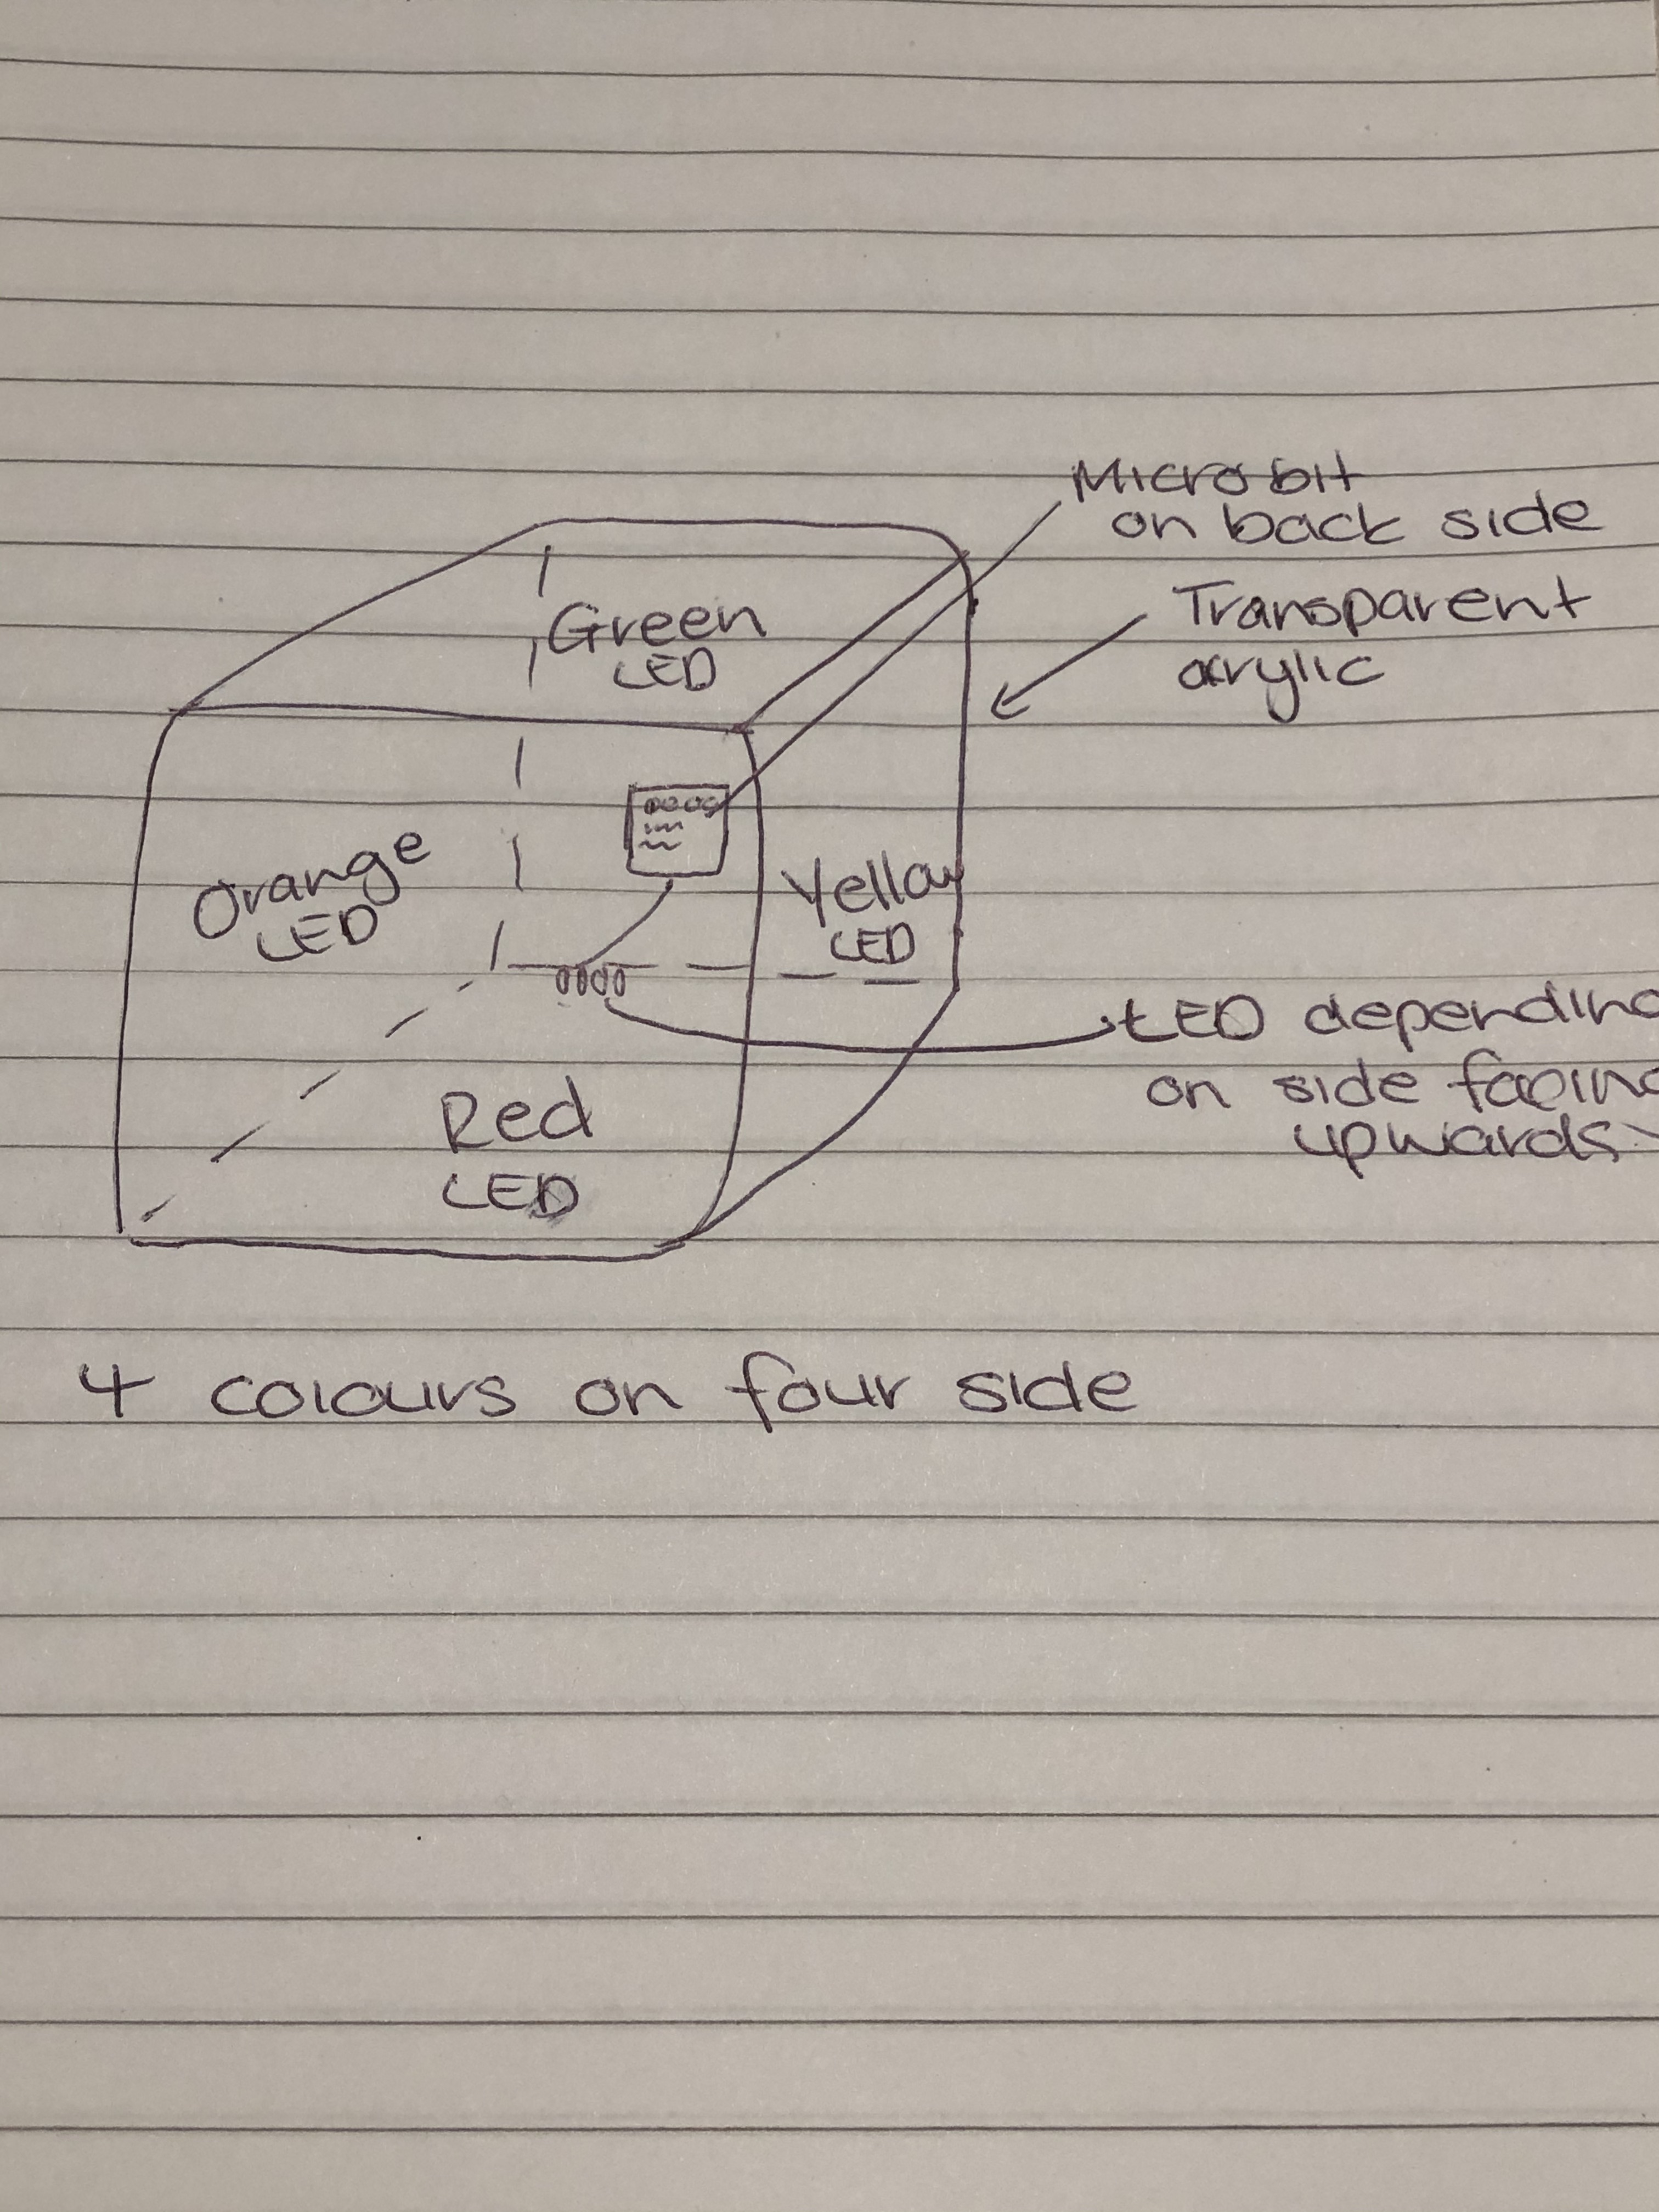 Microbit
on back side
Transparent
acrylic
Green
LED
Orange
LED
Yellow
LED
LED depending
on side facing
upwards
Red
LED
4 colours on four side